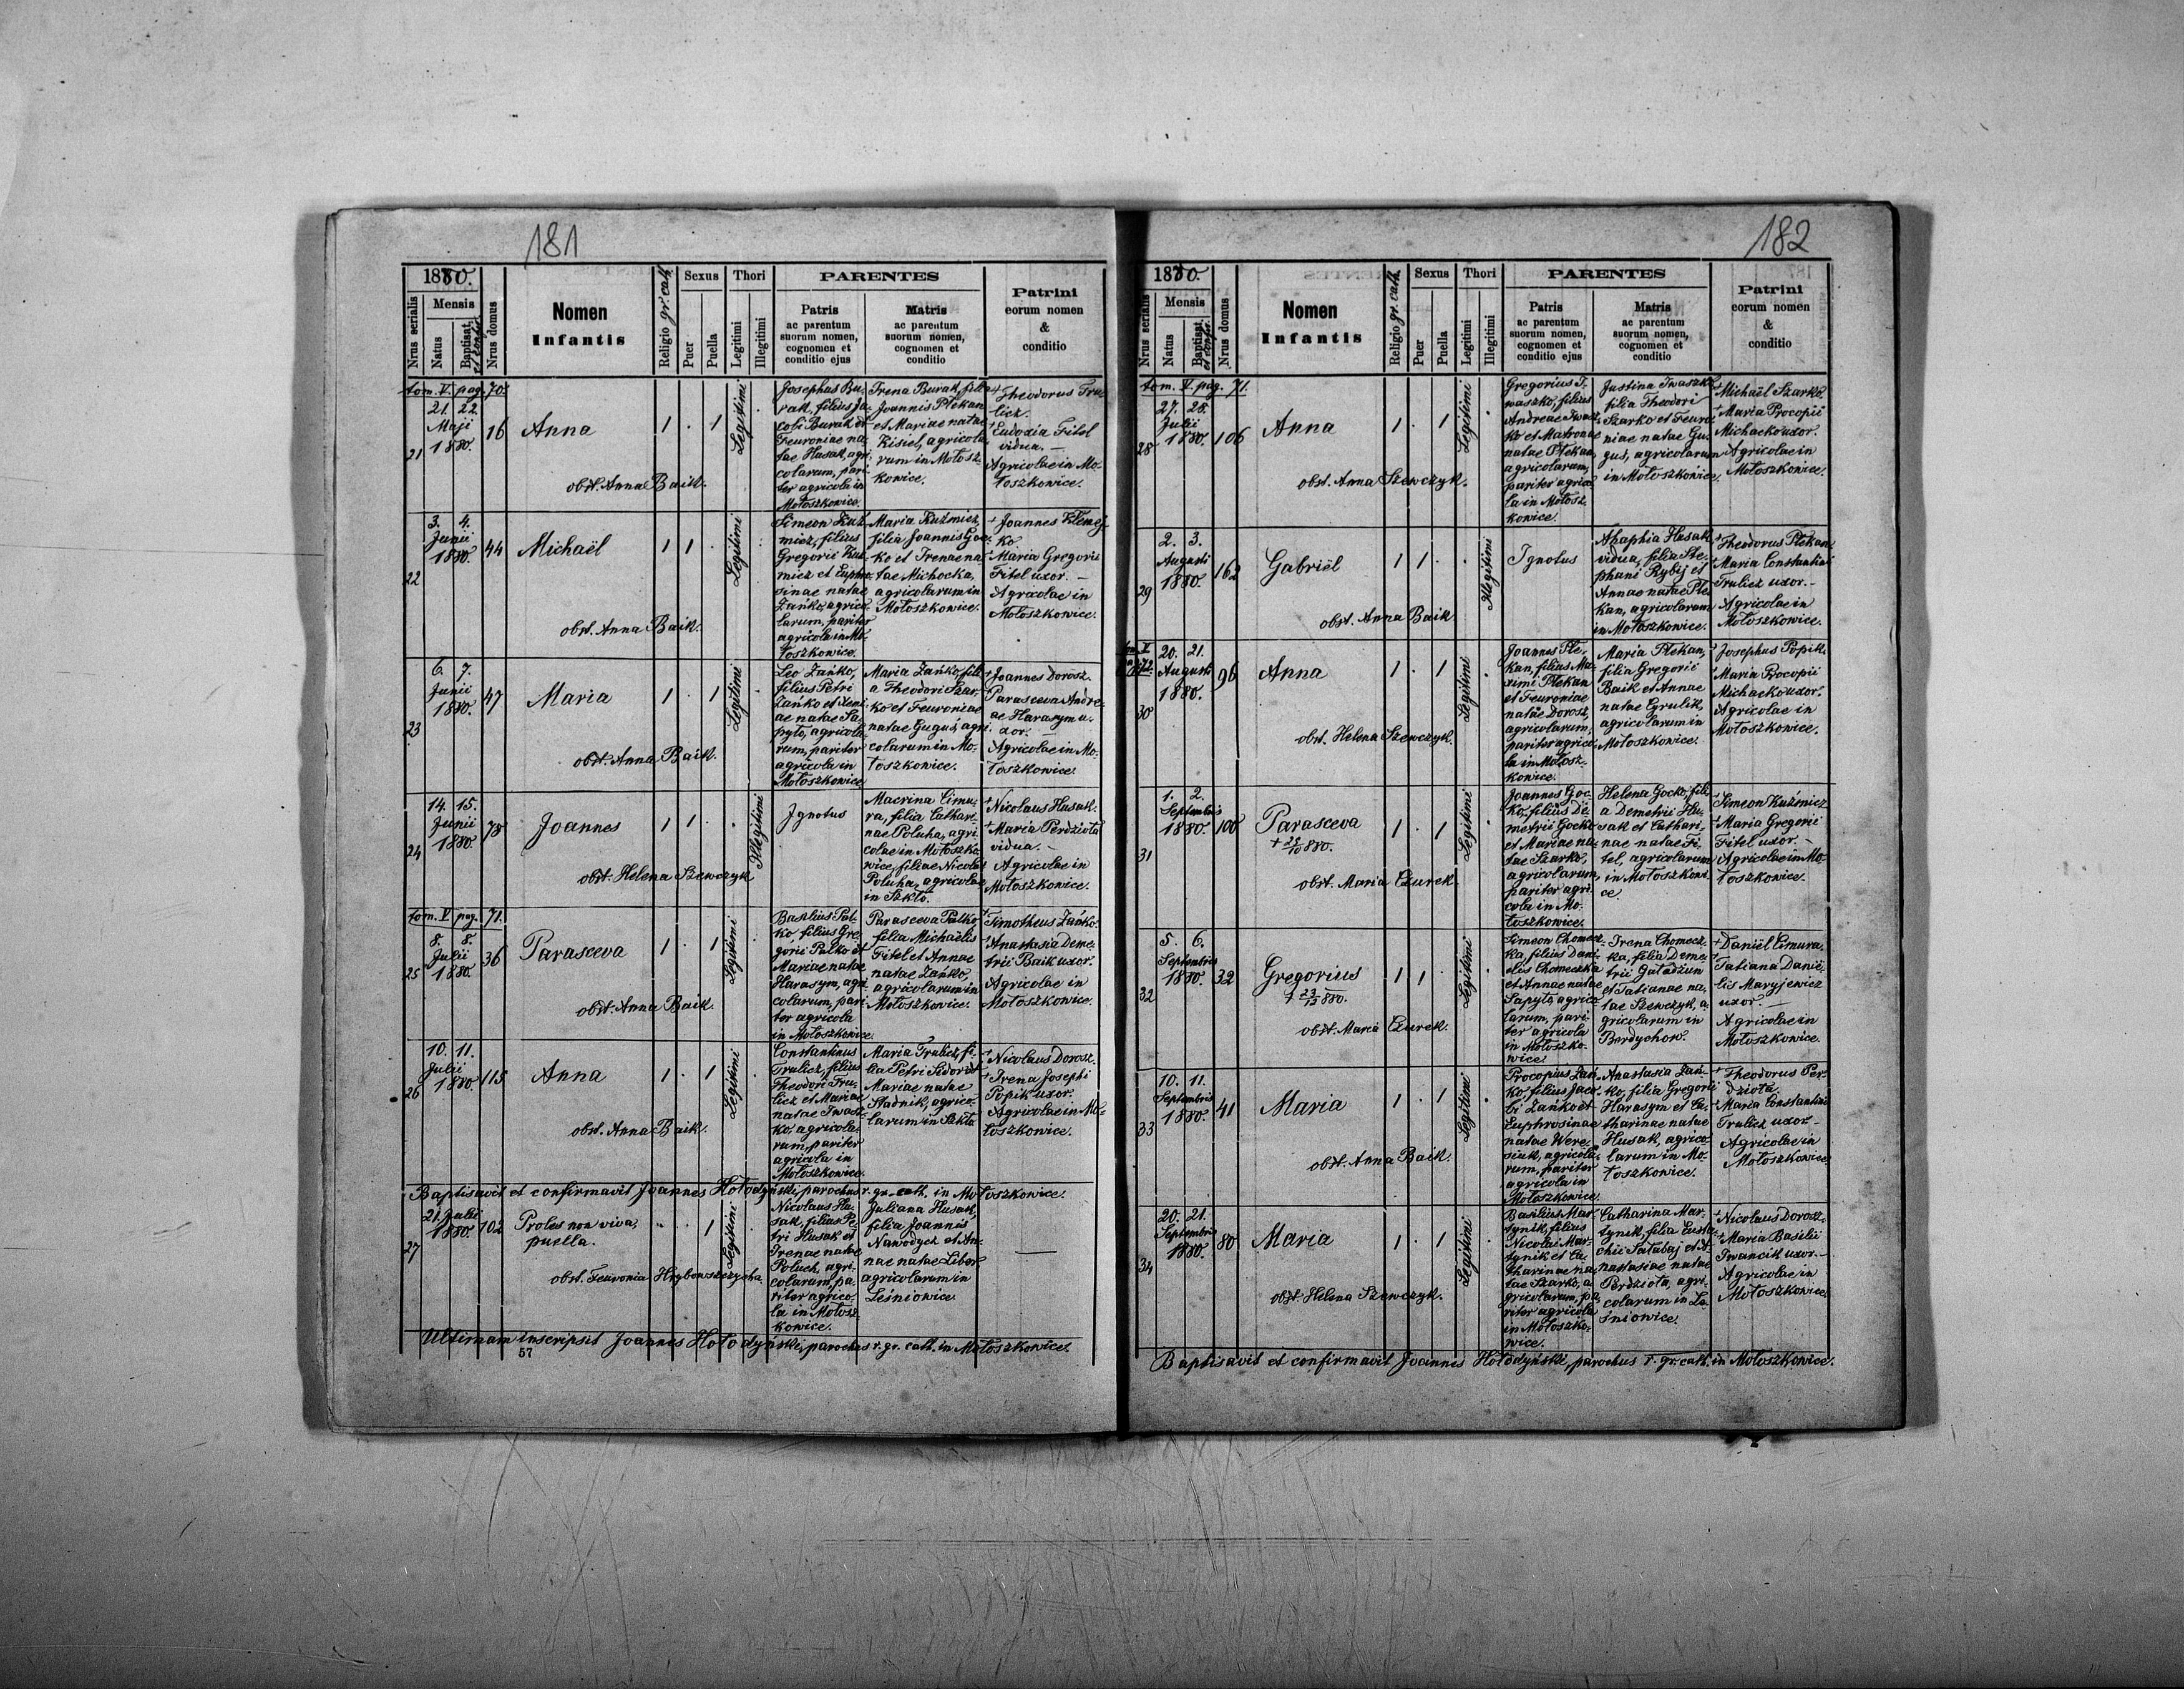 181
1880.
Nrus serialis
Mensis
Natus
Baptisat. et confir.
Nrus domus
Nomen
Infantis
Religio gr. cath.
Sexus
Puer
Puella
Thori
Legitimi
Illegitimi
PARENTES
Patris
ac parentum
suorum nomen,
cognomen et
conditio ejus
Matris
ac parentum
suorum nomen,
cognomen et
conditio
Patrini
eorum nomen
&
conditio
tom. V. pag. 70.
21
21. 22.
Maji
1880.
16
Anna
obst. Anna Baik.
1 . 1
Legitimi
Josephus Bu-
rak, filius Ja-
cobi Burak et
Feuroniae na-
tae Husak, agri-
colarum, pari-
ter agricola in
Mołoszkowice.
Irena Burak, filia
Joannis Plekan
et Mariae natae
Kisiel, agricola-
rum in Mołosz-
kowice.
+ Theodorus Tru-
licz.
+ Eudoxia Fitel
vidua. —
Agricolae in Mo-
łoszkowice.
22
3. 4.
Junii
1880.
44
Michaël
obst. Anna Baik.
1 1 .
Legitimi
Simeon Kuź-
micz, filius
Gregorii Kuź-
micz et Euphro-
sinae natae
Zańko, agrico-
larum, pariter
agricola in Mo-
łoszkowice.
Maria Kuźmicz,
filia Joannis Goc-
ko et Irenae na-
tae Michocka,
agricolarum in
Mołoszkowice.
+ Joannes Klemej-
ko
+ Maria Gregorii
Fitel uxor. —
Agricolae in
Mołoszkowice.
23
6. 7.
Junii
1880.
47
Maria
obst. Anna Baik.
1 . 1
Legitimi
Leo Zańko,
filius Petri
Zańko et Xeni-
ae natae Sa-
pyto, agricola-
rum, pariter
agricola in
Mołoszkowice
Maria Zańko, fili-
a Theodori Szar-
ko et Feuroniae
natae Guguś, agri-
colarum in Mo-
łoszkowice.
+ Joannes Dorosz.
Parasceva Andre-
ae Harasym u-
xor. —
Agricolae in Mo-
łoszkowice.
24
14. 15.
Junii
1880.
78
Joannes
obst. Helena Szewczyk
1 1 .
Illegitimi
Ignotus
Macrina Cimu-
ra, filia Cathari-
nae Poluha, agri-
colae in Mołoszko-
wice, filiae Nicolai
Poluha, agricolae
in Szkło.
+ Nicolaus Husak.
+ Maria Perdziota
vidua. —
Agricolae in
Mołoszkowice.
tom. V. pag. 71.
25
8. 8.
Julii
1880.
36
Parasceva
obst. Anna Baik.
1 . 1
Legitimi
Basilius Pał-
ko filius Gre-
gorii Pałko et
Mariae natae
Harasym, agri-
colarum, pari-
ter agricola
in Mołoszkowice.
Parasceva Pałko
filia Michaëlis
Fitel et Annae
natae Zańko,
agricolarum in
Mołoszkowice.
+ Timotheus Zańko.
+ Anastasia Deme-
trii Baik uxor.
Agricolae in
Mołoszkowice.
26
10. 11.
Julii
1880.
115
Anna
obst. Anna Baik.
1 . 1
Legitimi
Constantinus
Trulicz, filius
Theodori Tru-
licz et Mariae
natae Iwasz-
ko, agricola-
rum, pariter
agricola in
Mołoszkowice.
Maria Trulicz, fi-
lia Petri Sidor et
Mariae natae
Stadnik, agrico-
larum in Szkło.
+ Nicolaus Dorosz.
+ Irena Josephi
Popik uxor.
Agricolae in Mo-
łoszkowice.
Baptisavit et confirmavit Joannes Hołodyński, parochus r. gr. cath. in Mołoszkowice.
27
21. Julii
1880.
102
Proles non viva,
puella.
obst. Feuronia Hrybowszczycha.
. . 1
Legitimi
Nicolaus Hu-
sak, filius Pe-
tri Husak et
Irenae natae
Poluch, agri-
colarum, pa-
riter agrico-
la in Mołosz-
kowice.
Juliana Husak,
filia Joannis
Nawodycz et An-
nae natae Liber
agricolarum in
Leśniowice.
—
Ultimam inscripsit Joannes Hołodyński, parochus r. gr. cath. in Mołoszkowice.
57
182
1880.
Nrus serialis
Mensis
Natus
Baptisat. et confir.
Nrus domus
Nomen
Infantis
Religio gr. cath.
Sexus
Puer
Puella
Thori
Legitimi
Illegitimi
PARENTES
Patris
ac parentum
suorum nomen,
cognomen et
conditio ejus
Matris
ac parentum
suorum nomen,
cognomen et
conditio
Patrini
eorum nomen
&
conditio
tom. V. pag. 71.
28
27. 28.
Julii
1880.
106
Anna
obst. Anna Szewczyk.
1 . 1
Legitimi
Gregorius I-
waszko, filius
Andreae Iwasz-
ko et Matronae
natae Plekan,
agricolarum,
pariter agrico-
la in Mołosz-
kowice.
Justina Iwaszko
filia Theodori
Szarko et Feuro-
niae natae Gu-
guś, agricolarum
in Mołoszkowice.
+ Michaël Szarko.
+ Maria Procopii
Michacko uxor.
Agricolae in
Mołoszkowice.
29
2. 3.
Augusti
1880.
162
Gabriël
obst. Anna Baik.
1 1 .
Illegitimi
Ignotus
Ahaphia Husak,
vidua, filia Ste-
phani Rybij et
Annae natae Ple-
kan, agricolarum
in Mołoszkowice.
+ Theodorus Plekan.
+ Maria Constantini
Trulicz uxor. —
Agricolae in
Mołoszkowice.
tom. V.
pag. 72.
30
20. 21.
Augusti
1880.
96
Anna
obst. Helena Szewczyk.
1 . 1
Legitimi
Joannes Ple-
kan, filius Ma-
ximi Plekan
et Feuroniae
natae Dorosz,
agricolarum,
pariter agrico-
la in Mołosz-
kowice.
Maria Plekan,
filia Gregorii
Baik et Annae
natae Grulik,
agricolarum in
Mołoszkowice.
+ Josephus Popik.
+ Maria Procopii
Michacko uxor.
Agricolae in
Mołoszkowice.
31
1. 2.
Septembris
1880.
100
Parasceva
obst. Maria Czurek.
1 . 1
Legitimi
Joannes Goc-
ko, filius De-
metrii Gocko
et Mariae na-
tae Szarko,
agricolarum,
pariter agri-
cola in Mo-
łoszkowice.
Helena Gocko, fili-
a Demetrii Hu-
sak et Cathari-
nae natae Fi-
tel, agricolarum
in Mołoszkowi-
ce.
+ Simeon Kuźmicz
+ Maria Gregorii
Fitel uxor. —
Agricolae in Mo-
łoszkowice.
32
5. 6.
Septembris
1880.
32
Gregorius
obst. Maria Czurek.
1 1 .
Legitimi
Simeon Chomecz-
ka, filius Dani-
elis Chomeczka
et Annae natae
Sapyto, agrico-
larum, pari-
ter agricola
in Mołoszko-
wice.
Irena Chomecz-
ka, filia Deme-
trii Gaładżun
et Tatianae na-
tae Szewczyk, a-
gricolarum in
Berdychow.
+ Daniël Cimura.
+ Tatiana Danië-
lis Maryjewicz
uxor. —
Agricolae in
Mołoszkowice.
33
10. 11.
Septembris
1880.
41
Maria
obst. Anna Baik.
1 . 1
Legitimi
Procopius Zań-
ko, filius Jaco-
bi Zańko et
Euphrosinae
natae Were-
siuk, agricola-
rum, pariter
agricola in
Mołoszkowice.
Anastasia Zań-
ko, filia Gregorii
Harasym et Ca-
tharinae natae
Husak, agrico-
larum in Mo-
łoszkowice.
+ Theodorus Per-
dziota.
+ Maria Constantini
Trulicz uxor —
Agricolae in
Mołoszkowice
34
20. 21.
Septembris
1880.
80
Maria
obst. Helena Szewczyk.
1 . 1
Legitimi
Basilius Mar-
tynik, filius
Nicolai Mar-
tynik et Ca-
tharinae na-
tae Szarko, a-
gricolarum, pa-
riter agricola
in Mołoszko-
wice.
Catharina Mar-
tynik, filia Eusta-
chii Satabaj et A-
nastasiae natae
Perdziota, agri-
colarum in Le-
śniowice.
+ Nicolaus Dorosz.
+ Maria Basilii
Iwancik uxor. —
Agricolae in
Mołoszkowice.
Baptisavit et confirmavit Joannes Hołodyński, parochus r. gr. cath. in Mołoszkowice.